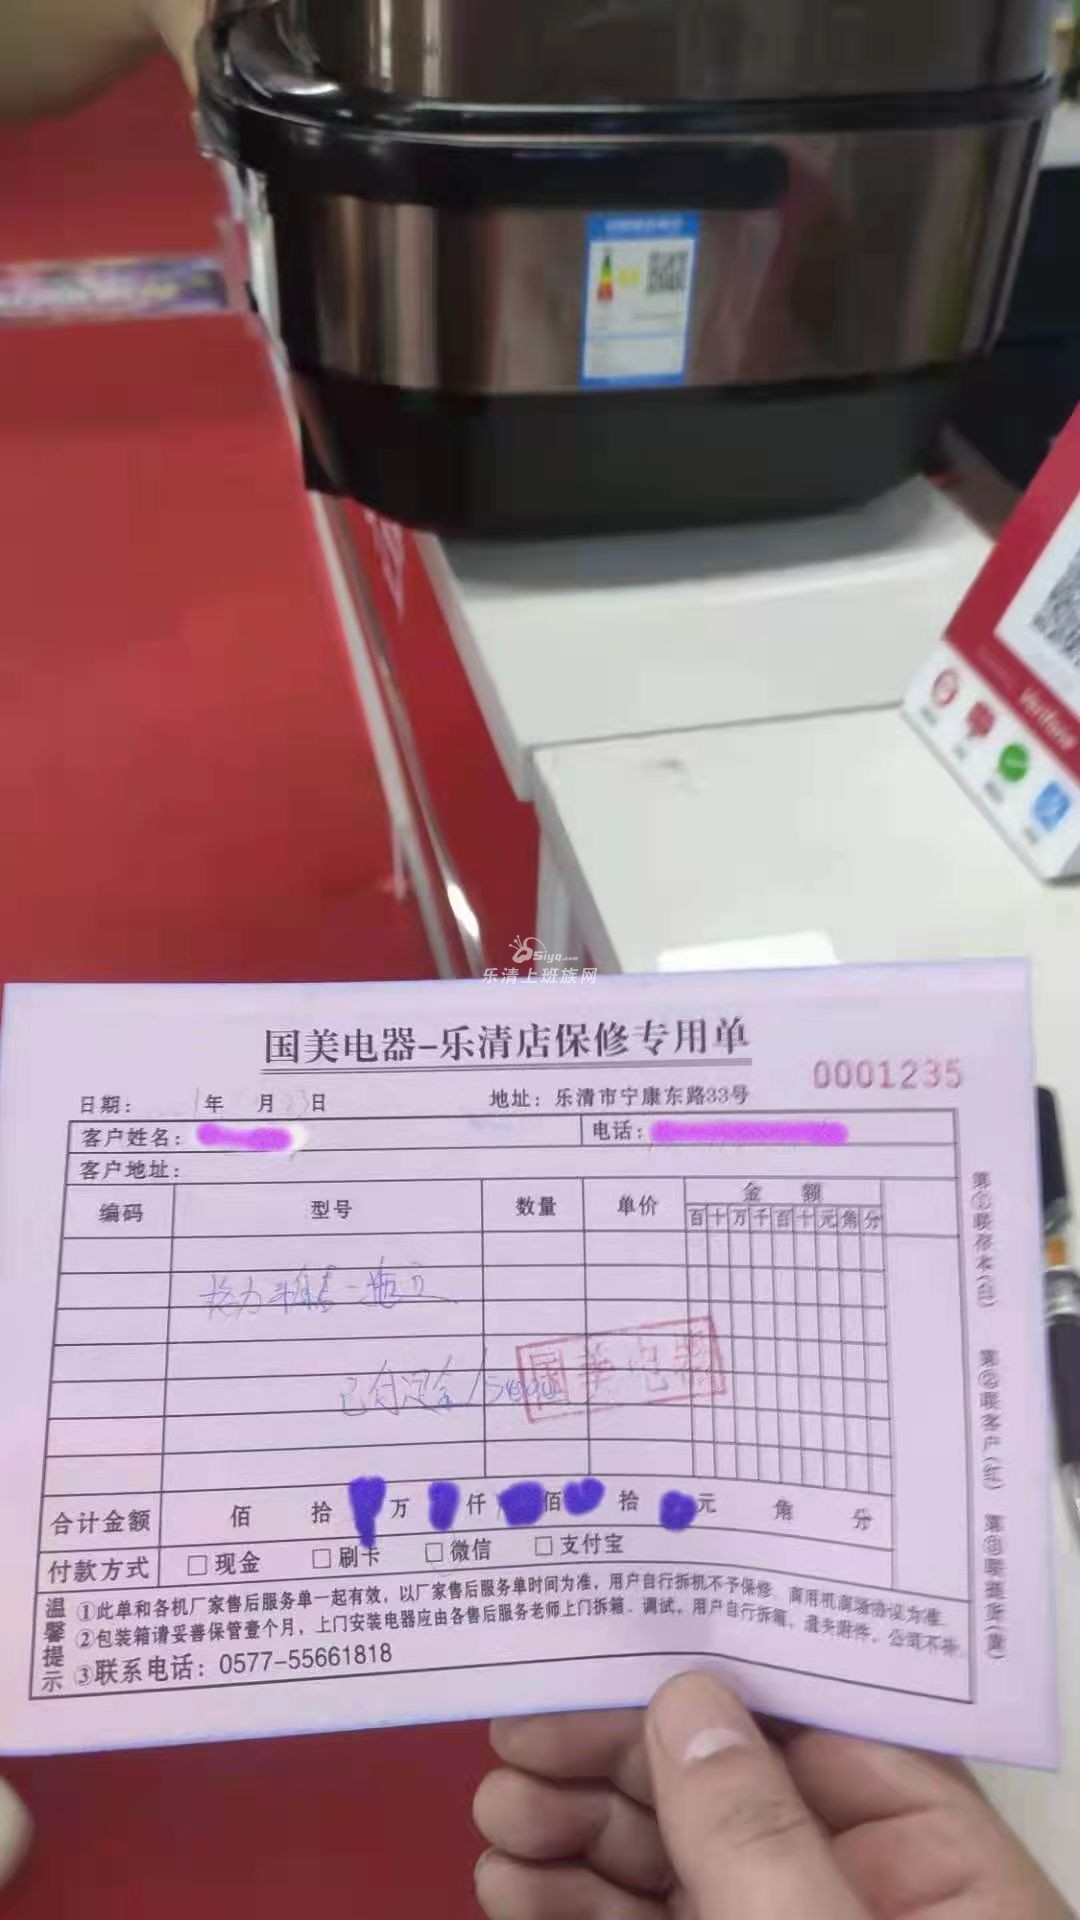 Siyq.com
乐清上班族网
国美电器-乐清店保修专用单
0001235
日期： 年 月 日 地址：乐清市宁康东路33号
客户姓名： 电话：
客户地址：
编码 型号 数量 单价 金 额
百 十 万 千 百 十 元 角 分
格力
已付定金
国美电器
合计金额 佰 拾 万 仟 佰 拾 元 角 分
付款方式 □现金 □刷卡 □微信 □支付宝
温馨提示
①此单和各机厂家售后服务单一起有效，以厂家售后服务单时间为准，用户自行拆机不予保修。商用机商场协议为准。
②包装箱请妥善保管壹个月，上门安装电器应由各售后服务老师上门拆箱、调试，用户自行拆箱，遗失附件，公司不补。
③联系电话：0577-55661818
第①联存本(白)
第②联客户(红)